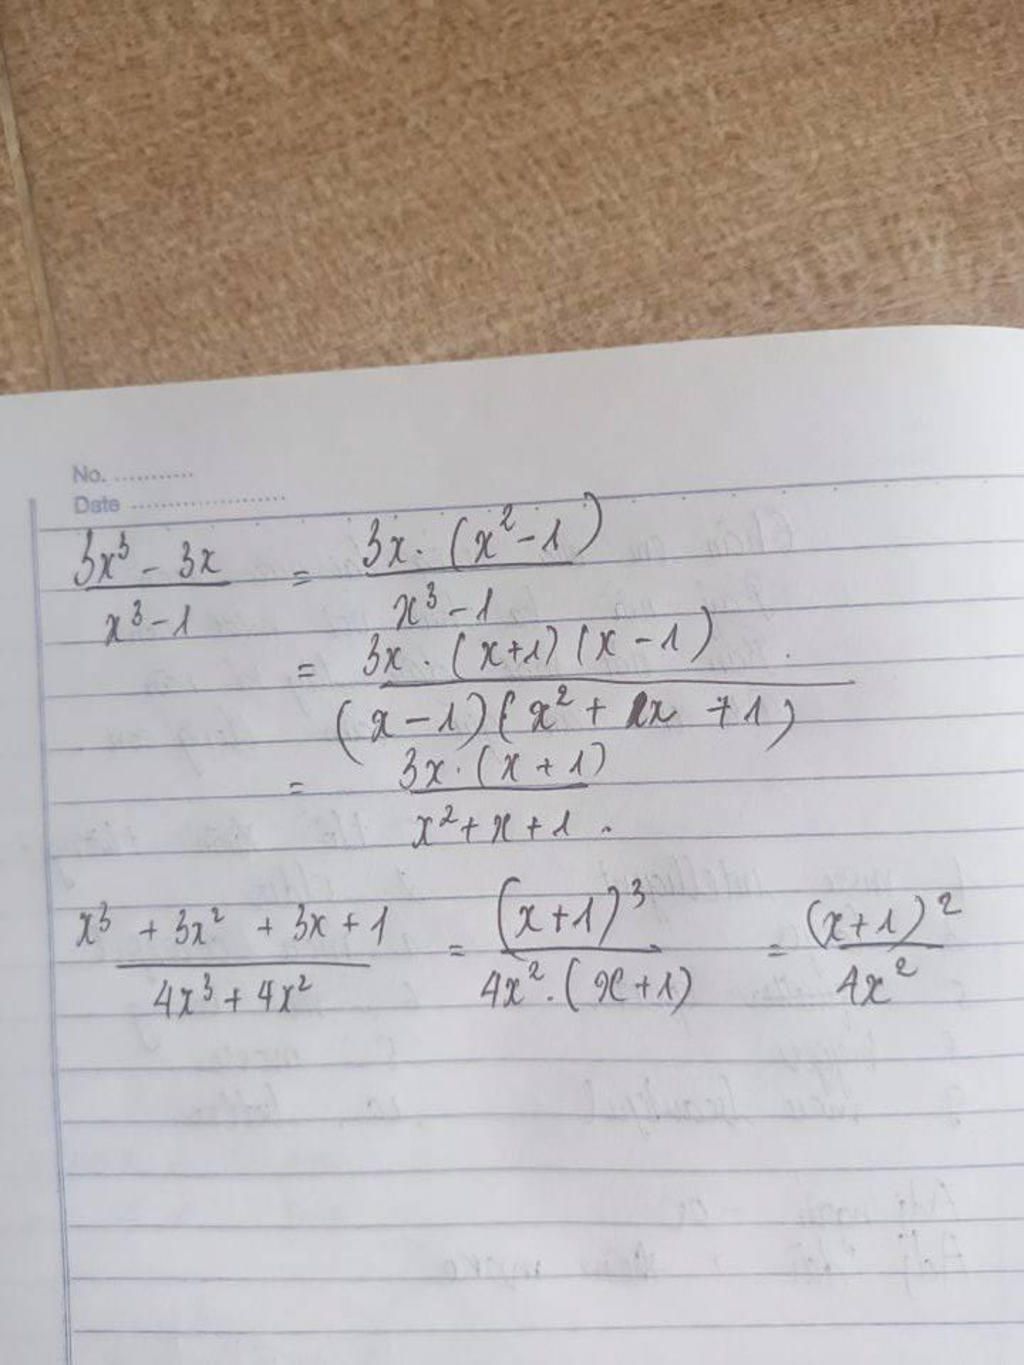 No. ...........
Date ......................
3x³ - 3x / x³ - 1 = 3x . (x² - 1) / x³ - 1
= 3x . (x+1) (x - 1) / (x - 1) (x² + x + 1)
= 3x . (x + 1) / x² + x + 1 .
x³ + 3x² + 3x + 1 / 4x³ + 4x² = (x+1)³ / 4x² . (x+1) = (x+1)² / 4x²